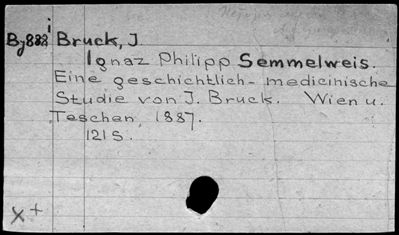 i
Bj888 Bruck, J.
Ignaz Philipp Semmelweis.
Eine geschichtlich-medicinische
Studie von J. Bruck. Wien u.
Teschen, 1887.
121 S.
X +